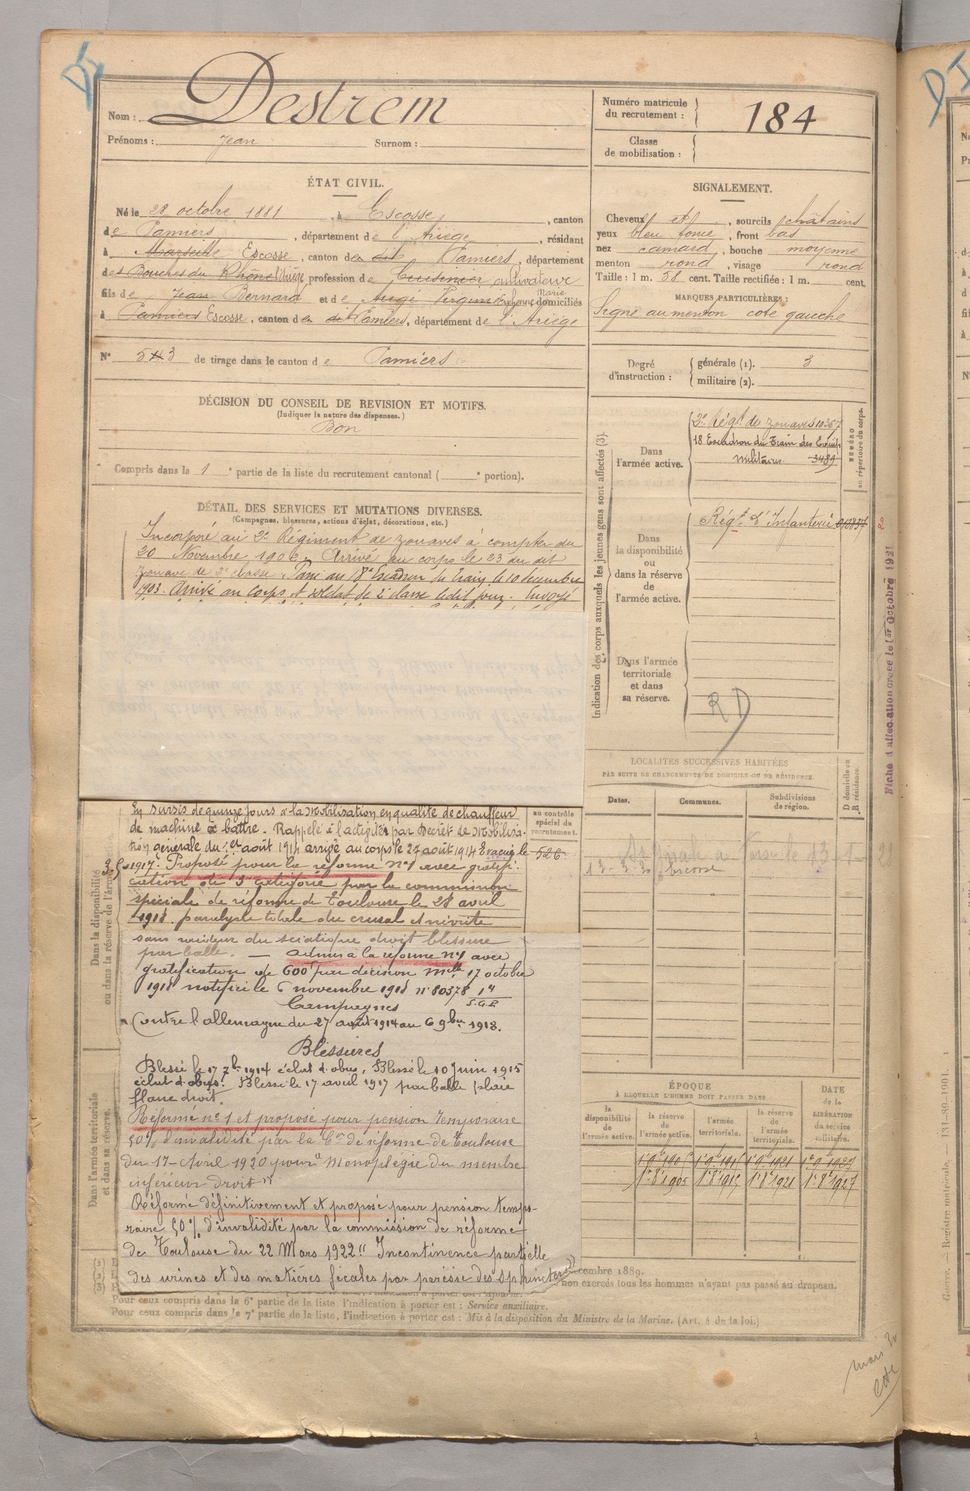 Nom : Destrem
Prénoms : Jean Surnom :
Numéro matricule du recrutement : 184
Classe de mobilisation :
ÉTAT CIVIL.
Né le 28 octobre 1881, à Escosse, canton
de Pamiers, département de l'Ariège, résidant
à Marseille Escosse, canton de Pamiers, département
des Bouches du Rhône Ariège profession de Cuisinier cultivateur
fils de Jean Bernard et de Marie domiciliés
à Pamiers Escosse, canton de Pamiers, département de l'Ariège
N° 53 de tirage dans le canton de Pamiers
DÉCISION DU CONSEIL DE REVISION ET MOTIFS.
(Indiquer la nature des dispenses.)
Bon
Compris dans la 1e partie de la liste du recrutement cantonal ( e portion).
DÉTAIL DES SERVICES ET MUTATIONS DIVERSES.
(Campagnes, blessures, actions d'éclat, décorations, etc.)
Incorporé au 2e Régiment de zouaves à compter du
20 Novembre 1902. Arrivé au corps le 23 du dit
zouave de 2e classe. Passé au 18e Escadron du train le 10 décembre
1903. Arrivé au corps et soldat de 2e classe ledit jour. Envoyé
En sursis de quinze jours à la Mobilisation en qualité de chauffeur
de machine à battre. Rappelé à l'activité par Décret de Mobilisa-
tion générale du 1er août 1914 arrivé au corps le 27 août 1914 Evacué le
1917. Proposé pour la réforme n°1 avec gratifi-
cation de 3e catégorie par la commission
spéciale de réforme de Toulouse le 27 avril
1918. paralysie totale du crural et névrite
sans raideur du sciatique droit blessure
par balle. — admis à la réforme n°1 avec
gratification de 600f par décision Mlle 17 octobre
1918 notifiée le 6 novembre 1918 n° 80378 1a
S.G.P.
Campagnes
Contre l'allemagne du 27 août 1914 au 6 9bre 1918.
Blessures
Blessé le 17 7bre 1914 éclat d'obus. Blessé le 10 juin 1915
éclat d'obus. Blessé le 17 avril 1917 par balle plaie
flanc droit.
Réformé n°1 et proposé pour pension temporaire
50% d'invalidité par la Con de réforme de Toulouse
du 17 Avril 1920 pour "Monoplégie du membre
inférieur droit".
Réformé définitivement et proposé pour pension tempo-
raire 50% d'invalidité par la commission de réforme
de Toulouse du 22 Mars 1922 "Incontinence partielle
des urines et des matières fécales par parésie des sphincters"
au contrôle spécial du recrutement.
526
Dans la disponibilité ou dans la réserve de l'armée
Dans l'armée territoriale et dans sa réserve.
SIGNALEMENT.
Cheveux et, sourcils châtains
yeux bleu foncé, front bas
nez camard, bouche moyenne
menton rond, visage rond
Taille : 1 m. 58 cent. Taille rectifiée : 1 m. cent.
MARQUES PARTICULIÈRES :
Signe au menton côté gauche
Degré d'instruction : générale (1). 3
militaire (2).
Indication des corps auxquels les jeunes gens sont affectés (3)
NUMÉRO au répertoire du corps.
Dans l'armée active.
2e Régt de zouaves
18 Escadron du Train des Equip
Militaires 3489
Dans la disponibilité ou dans la réserve de l'armée active.
Régt d'Infanterie
Dans l'armée territoriale et dans sa réserve.
RD
Fiche d'allocation créée le 1er Octobre 1921
LOCALITÉS SUCCESSIVES HABITÉES
PAR SUITE DE CHANGEMENTS DE DOMICILE OU DE RÉSIDENCE.
Dates. Communes. Subdivisions de région. D domicile ou R résidence.
13-3-30 Escosse
ÉPOQUE
À LAQUELLE L'HOMME DOIT PASSER DANS
la disponibilité de l'armée active. la réserve de l'armée active. l'armée territoriale. la réserve de l'armée territoriale. DATE de la LIBÉRATION du service militaire.
décembre 1889.
non exercés tous les hommes n'ayant pas passé au drapeau.
Pour ceux compris dans la 6e partie de la liste, l'indication à porter est : Service auxiliaire.
Pour ceux compris dans la 7e partie de la liste, l'indication à porter est : Mis à la disposition du Ministre de la Marine. (Art. 4 de la loi.)